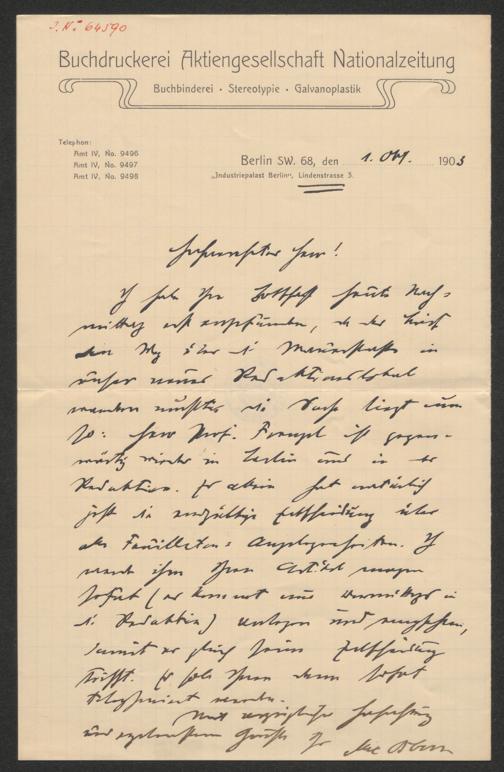 J. N. 64590
Buchdruckerei Aktiengesellschaft Nationalzeitung
Buchbinderei · Stereotypie · Galvanoplastik
Telephon:
Amt IV, No. 9496
Amt IV, No. 9497
Amt IV, No. 9498
Berlin SW. 68, den 1. Okt. 1903
„Industriepalast Berlin“, Lindenstrasse 3.
Herr!
Ich habe Ihre Botschaft heute Nach-
mittag erst empfunden, da der Brief
den Weg über die Mauerstraße in
unser neues Redaktionslokal
mußte. Die Sache liegt nun
so: Herr Prof. Frenzel ist gegen-
wärtig wieder in Berlin und in der
Redaktion. Er allein hat natürlich
jetzt die endgültige Entscheidung über
alle Feuilleton-Angelegenheiten. Ich
werde ihm Ihren Artikel morgen
sofort (er kommt nur vormittags in
die Redaktion) vorlegen und
damit er gleich seine Entscheidung
trifft. Er soll Ihnen dann sofort
werden.
Mit vorzüglicher Hochachtung
und ergebenstem Gruße Ihr